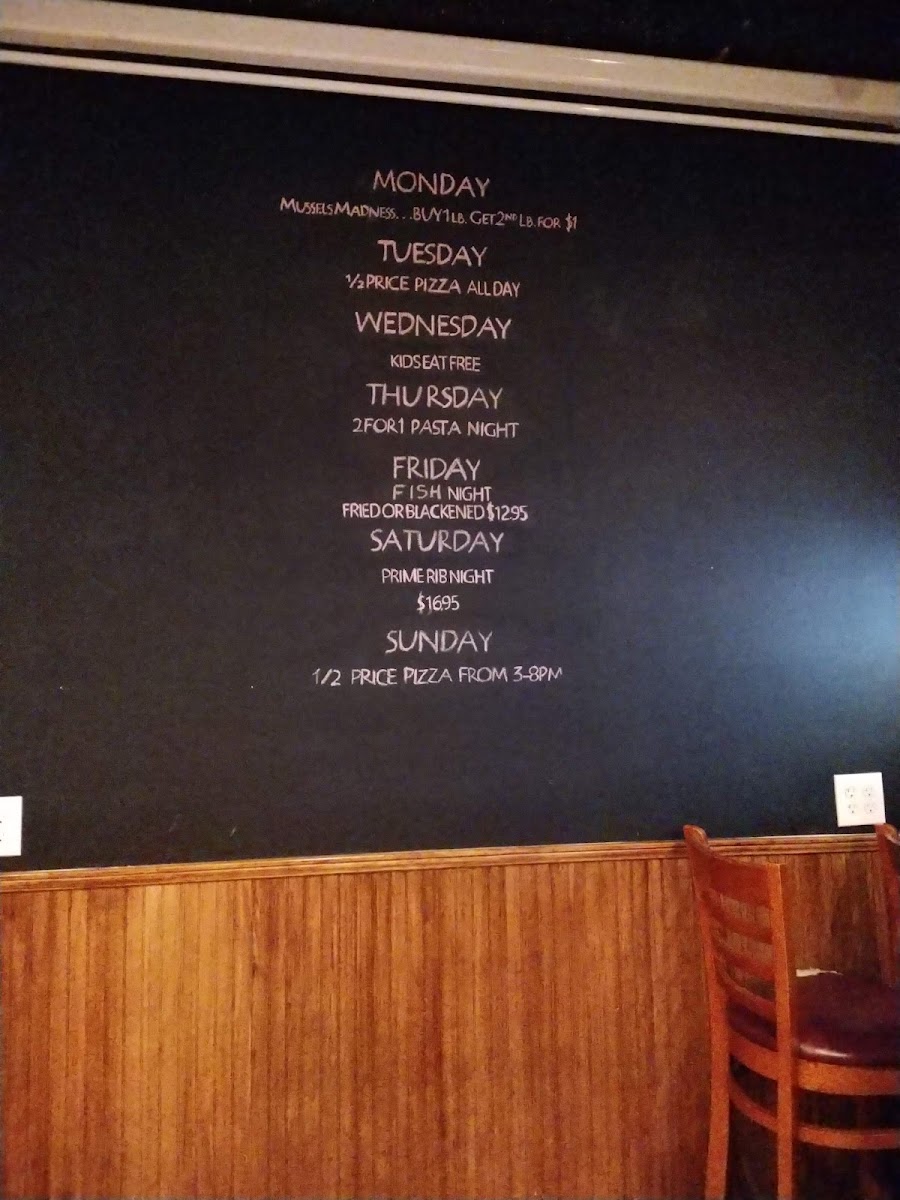 MONDAY
MUSSELS MADNESS...BUY 1 LB. GET 2ND LB. FOR $1
TUESDAY
1/2 PRICE PIZZA ALL DAY
WEDNESDAY
KIDS EAT FREE
THURSDAY
2 FOR 1 PASTA NIGHT
FRIDAY
FISH NIGHT
FRIED OR BLACKENED $12.95
SATURDAY
PRIME RIB NIGHT
$16.95
SUNDAY
1/2 PRICE PIZZA FROM 3-8PM